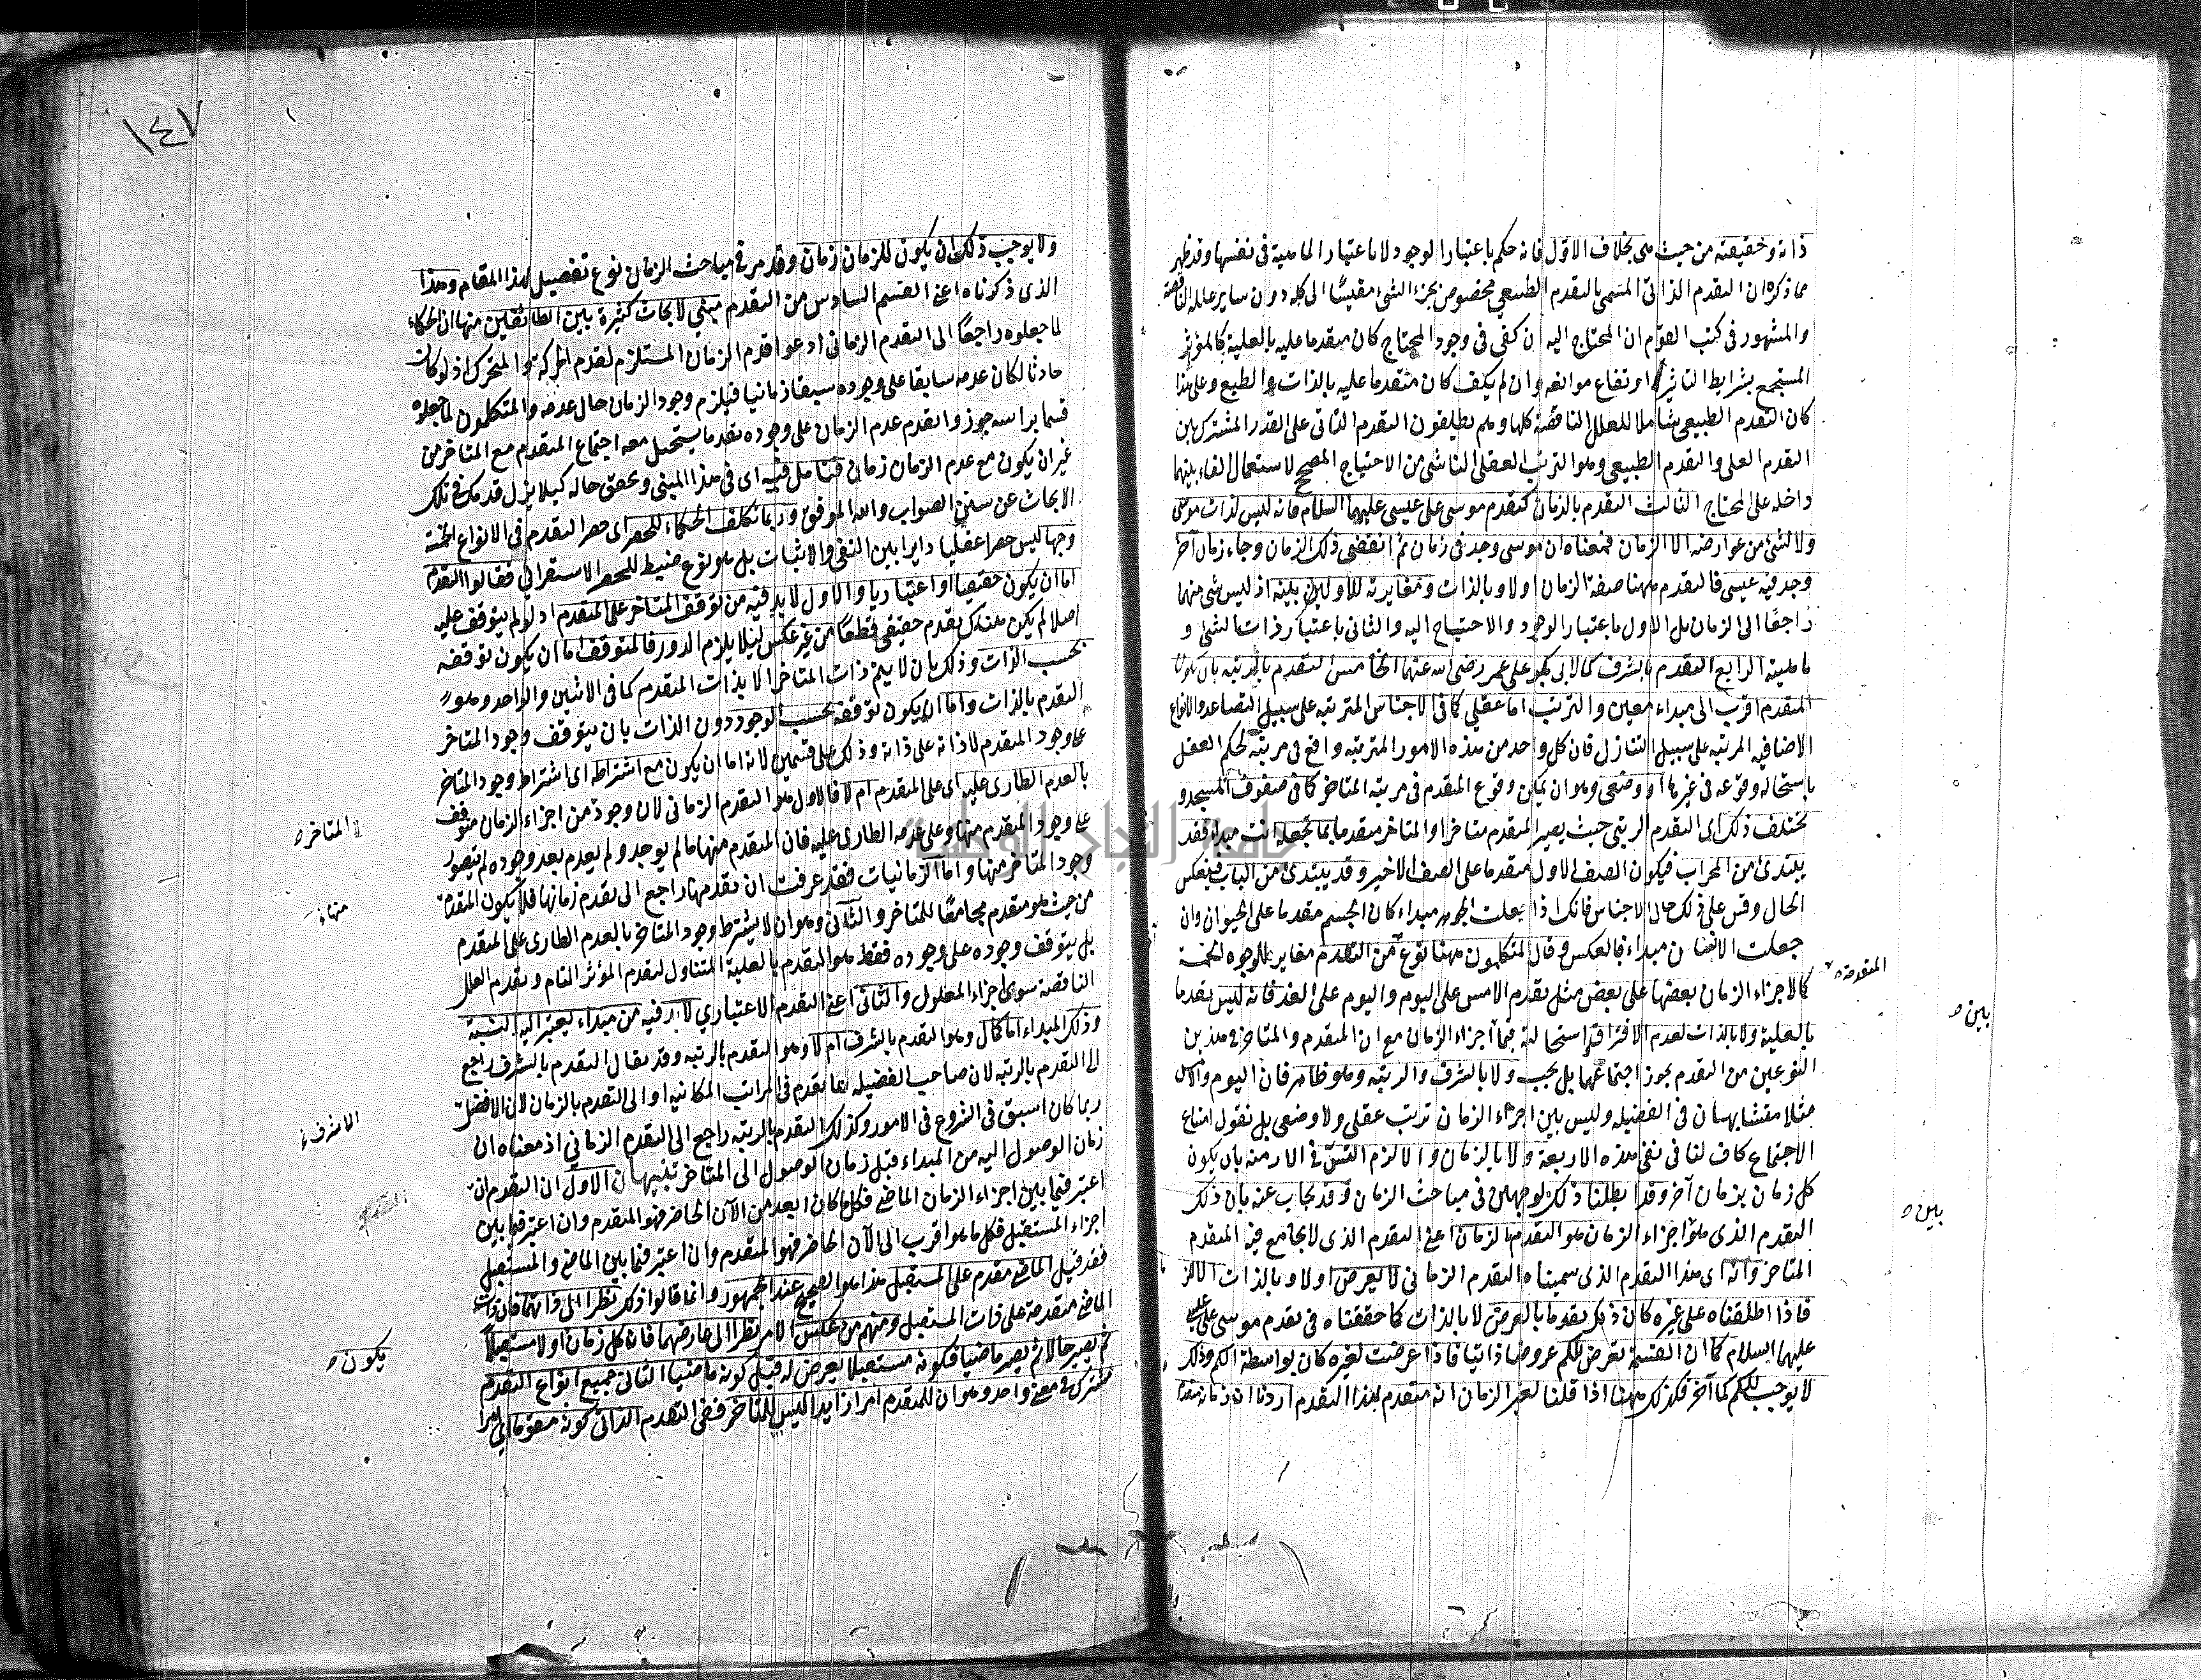 ذاته وحقيقته من حيث هى بخلاف الاول فانه حكم باعتبار الوجود لا باعتبار الماهية فى نفسها وقد ظهر
مما ذكره ان التقدم الذاتى المسمى بالتقدم الطبيعي مخصوص بجزء الشئ مقيسًا الى كله دون ساير علله الناقصة
والمشهور فى كتب القوم ان المحتاج اليه ان كفى فى وجود المحتاج كان متقدما عليه بالعلية كالمؤثر
المستجمع بشرايط التاثير او تفاع موانعه وان لم يكف كان متقدما عليه بالذات والطبع وعلى هذا
كان التقدم الطبيعى شاملا للعلل الناقصة كلها وهم يطلقون التقدم الذاتى على القدر المشترك بين
التقدم العلى والتقدم الطبيعى وهو الترتب العقلى الناشى من الاحتياج المصحح لاستعمال الفاء بينهما
داخله على المحتاج الثالث التقدم بالزمان كتقدم موسى على عيسى عليهما السلام فانه ليس لذات موسى
ولا لشئ من عوارضه الا الزمان فمعناه ان موسى وجد فى زمان ثم انقضى ذلك الزمان وجاء زمان آخر
وجد فيه عيسى فالتقدم ههنا صفة الزمان اولا وبالذات ومغايرته للاولين بينه اذ ليس شى منهما
راجعًا الى الزمان بل الاول باعتبار الوجود والاحتياج اليه والثانى باعتبار ذات الشئ و
ماهيته الرابع التقدم بالشرف كما لابى بكر على عمر رضى الله عنهما الخامس التقدم بالرتبة بان يكون
المتقدم اقرب الى مبداء معين والترتب اما عقلى كما فى الاجناس المترتبه على سبيل التصاعد والانواع
الاضافيه المرتبه على سبيل التنازل فان كل واحد من هذه الامور المترتبه واقع فى مرتبة لحكم العقل
باستحاله وقوعه فى غيرها او وضعى وهو ان يمكن وقوع المتقدم فى مرتبه المتاخر كما فى صفوف المسجد و
يختلف ذلك اى التقدم الرتبى حيث يصير المتقدم متاخرا والمتاخر متقدما بما تجعله انت مبداء فقد
يبتدئ من المحراب فيكون الصف الاول متقدما على الصف الاخير وقد يبتدئ من الباب فينعكس
الحال وقس على ذلك حال الاجناس فانك اذا جعلت الجوهر مبداء كان الجسم مقدما على الحيوان وان
جعلت الانسان مبداء فبالعكس وقال المتكلمون ههنا نوع آخر من التقدم مغاير للوجوه الخمسة
المتقدمة
كما لاجزاء الزمان بعضها على بعض مثل تقدم الامس على اليوم واليوم على الغد فانه ليس تقدما
بالعلية ولا بالذات لعدم الافتراق واستحالته فيما اجزاء الزمان مع ان المتقدم والمتاخر فى هذين
بين
النوعين من التقدم يجوز اجتماعهما بل يجب ولا بالشرف والرتبه وهو ظاهر فان اليوم والامس
مثلا متشابهان فى الفضيله وليس بين اجزاء الزمان ترتب عقلى ولا وضعى بل نقول امتناع
الاجتماع كاف لنا فى نفى هذه الاربعة ولا بالزمان والا لزم التس فى الازمنه بان يكون
كل زمان بزمان آخر وقد ابطلنا ذلك لوجهين فى مباحث الزمان وقد يجاب عنه بان ذلك
بين
التقدم الذى هو اجزاء الزمان هو التقدم بالزمان اعنى التقدم الذى لا يجامع فيه المتقدم
المتاخر وانه اى هذا التقدم الذى سميناه التقدم الزمانى لا يعرض اولا وبالذات الا للز
فاذا اطلقناه على غيره كان ذلك تقدما بالعرض لا بالذات كما حققناه فى تقدم موسى على عيسى
عليهما السلام كما ان القسمة تعرض للكم عروضا ذاتيا فاذا عرضت لغيره كان بواسطة الكم وذلك
لا يوجب للكم كما آخر فكذلك ههنا اذا قلنا لغير الزمان انه متقدم بهذا التقدم اردنا ان زمانه متقدم
١٤٧
ولا يوجب ذلك ان يكون للزمان زمان وقد مر فى مباحث الزمان نوع تفصيل لهذا المقام وهذا
الذى ذكرناه اعنى القسم السادس من التقدم مبنى لابحاث كثيرة بين الطائفتين منها ان الحكماء
لما جعلوه راجعًا الى التقدم الزمانى ادعوا قدم الزمان المستلزم لقدم الحركة والمتحرك اذ لو كان
حادثا لكان عدمه سابقا على وجوده سبقا زمانيا فيلزم وجود الزمان حال عدمه والمتكلمون لما جعلوه
قسما براسه جوزوا تقدم عدم الزمان على وجوده تقدما يستحيل معه اجتماع المتقدم مع المتاخر من
غير ان يكون مع عدم الزمان زمان فتامل فيه اى فى هذا المبنى وتحقق حاله كيلا يزل قدمك فى تلك
الابحاث عن سنن الصواب والله الموفق وربما تكلف الحكماء للحصر اى حصر التقدم فى الانواع الخمسة
وجها ليس حصرا عقليا دايرا بين النفى والاثبات بل هو نوع ضبط للحصر الاستقرائى فقالوا التقدم
اما ان يكون حقيقيا او اعتباريا والاول لا بد فيه من توقف المتاخر على المتقدم اذ لو لم يتوقف عليه
اصلا لم يكن هناك تقدم حقيقى قطعًا من غير عكس ليلا يلزم الدور فالمتوقف اما ان يكون توقفه
بحسب الذات وذلك بان لا يتم ذات المتاخر الا بذات المتقدم كما فى الاثنين والواحد وهو
التقدم بالذات واما ان يكون توقفه بحسب الوجود دون الذات بان يتوقف وجود المتاخر
على وجود المتقدم لا ذاته على ذاته وذلك على قسمين لانه اما ان يكون مع اشتراطه اى اشتراط وجود المتاخر
بالعدم الطارى عليه اى على المتقدم ام لا فالاول هو التقدم الزمانى لان وجود من اجزاء الزمان متوقف
المتاخر
على وجود المتقدم منها وعلى عدمه الطارى عليه فان المتقدم منهما ما لم يوجد ولم يعدم بعد وجوده لم يتصور
وجود المتاخر منها واما الزمانيات فقد عرفت ان تقدمها راجع الى تقدم زمانها فلا يكون المتقدم
منها
من حيث هو متقدم مجامعًا للمتاخر والثانى وهو ان لا يشترط وجود المتاخر بالعدم الطارى على المتقدم
بل يتوقف وجوده على وجوده فقط هو التقدم بالعلية المتناول لتقدم المؤثر التام وتقدم العلل
الناقصة سوى اجزاء المعلول والثانى اعنى التقدم الاعتبارى لا بد فيه من مبداء يعتبر اليه النسبة
وذلك المبداء اما كمال وهو التقدم بالشرف ام لا وهو التقدم بالرتبه وقد يقال التقدم بالشرف راجع
الى التقدم بالرتبه لان صاحب الفضيله ربما تقدم فى المراتب المكانيه او الى التقدم بالزمان لان الافضل
الاشرف
ربما كان اسبق فى الشروع فى الامور وكذلك التقدم بالرتبه راجع الى التقدم الزمانى اذ معناه ان
زمان الوصول اليه من المبداء قبل زمان الوصول الى المتاخر تنبيهان الاول ان التقدم ان
اعتبر فيما بين اجزاء الزمان الماضى فكل ما كان ابعد من الآن الحاضر فهو المتقدم وان اعتبر فيما بين
اجزاء المستقبل فكل ما هو اقرب الى الآن الحاضر فهو المتقدم وان اعتبر فيما بين الماضى والمستقبل
فقد قيل الماضى مقدم على المستقبل هذا هو الصحيح عند الجمهور وانما قالوا ذلك نظرا الى ذاتهما فان ذات
الماضى متقدمة على ذات المستقبل ومنهم من عكس الامر نظرا الى عارضهما فان كل زمان اولا مستقبلاً
يكون
ثم يصير حالا ثم يصير ماضيا فكونه مستقبلا يعرض له قبل كونه ماضيا الثانى جميع انواع التقدم
مشترك فى معنى واحد وهو ان للمتقدم امرا زايدا ليس للمتاخر ففى التقدم الذاتى كونه مقوما